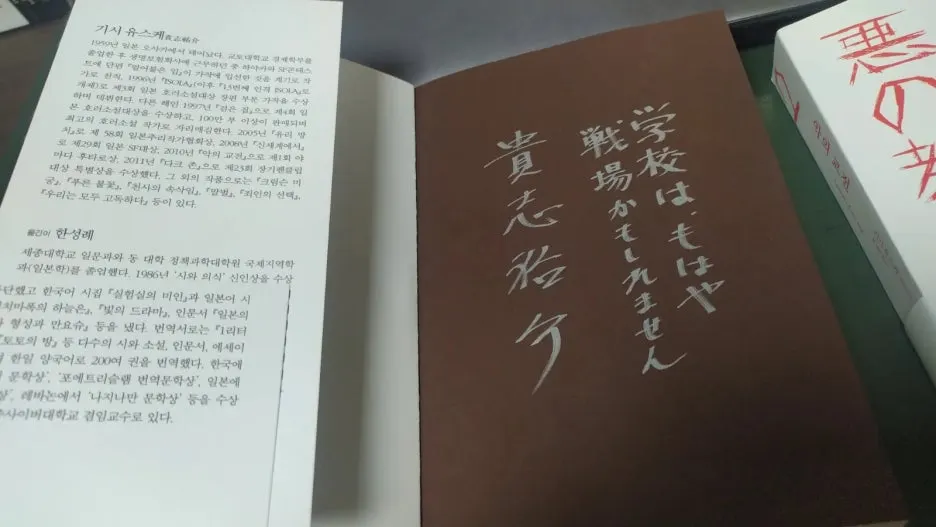 기시 유스케 貴志祐介
1959년 일본 오사카에서 태어났다. 교토대학교 경제학부를
졸업한 후 생명보험회사에 근무하던 중 하야카와 SF콘테스
트에 단편 『얼어붙은 입』이 가작에 입선한 것을 계기로 작
가로 전직, 1996년 『ISOLA』(이후 『13번째 인격 ISOLA』로
개제)로 제3회 일본 호러소설대상 장편 부문 가작을 수상
하며 데뷔한다. 다른 해인 1997년 『검은 집』으로 제4회 일
본 호러소설대상을 수상하고, 100만 부 이상이 판매되며
최고의 호러소설 작가로 자리매김한다. 2005년 『유리 망
치』로 제 58회 일본추리작가협회상, 2008년 『신세계에서』
로 제29회 일본 SF대상, 2010년 『악의 교전』으로 제1회 야
마다 후타로상, 2011년 『다크 존』으로 제23회 장기펜클럽
대상 특별상을 수상했다. 그 외의 작품으로는 『크림슨 미
궁』, 『푸른 불꽃』, 『천사의 속삭임』, 『말벌』, 『죄인의 선택』,
『우리는 모두 고독하다』 등이 있다.
옮긴이 한성례
세종대학교 일문과와 동 대학 정책과학대학원 국제지역학
과(일본학)를 졸업했다. 1986년 '시와 의식' 신인상을 수상
단했고 한국어 시집 『실험실의 미인』과 일본어 시
하늘은』, 『빛의 드라마』, 인문서 『일본의
형성과 만요슈』 등을 냈다. 번역서로는 『1리터
『토토의 방』 등 다수의 시와 소설, 인문서, 에세이
한일 양국어로 200여 권을 번역했다. 한국에
문학상', '포에트리슬램 번역문학상', 일본에
상', 레바논에서 '나지나만 문학상' 등을 수상
사이버대학교 겸임교수로 있다.
学校は、もはや
戦場かもしれません
貴志祐介
悪の教